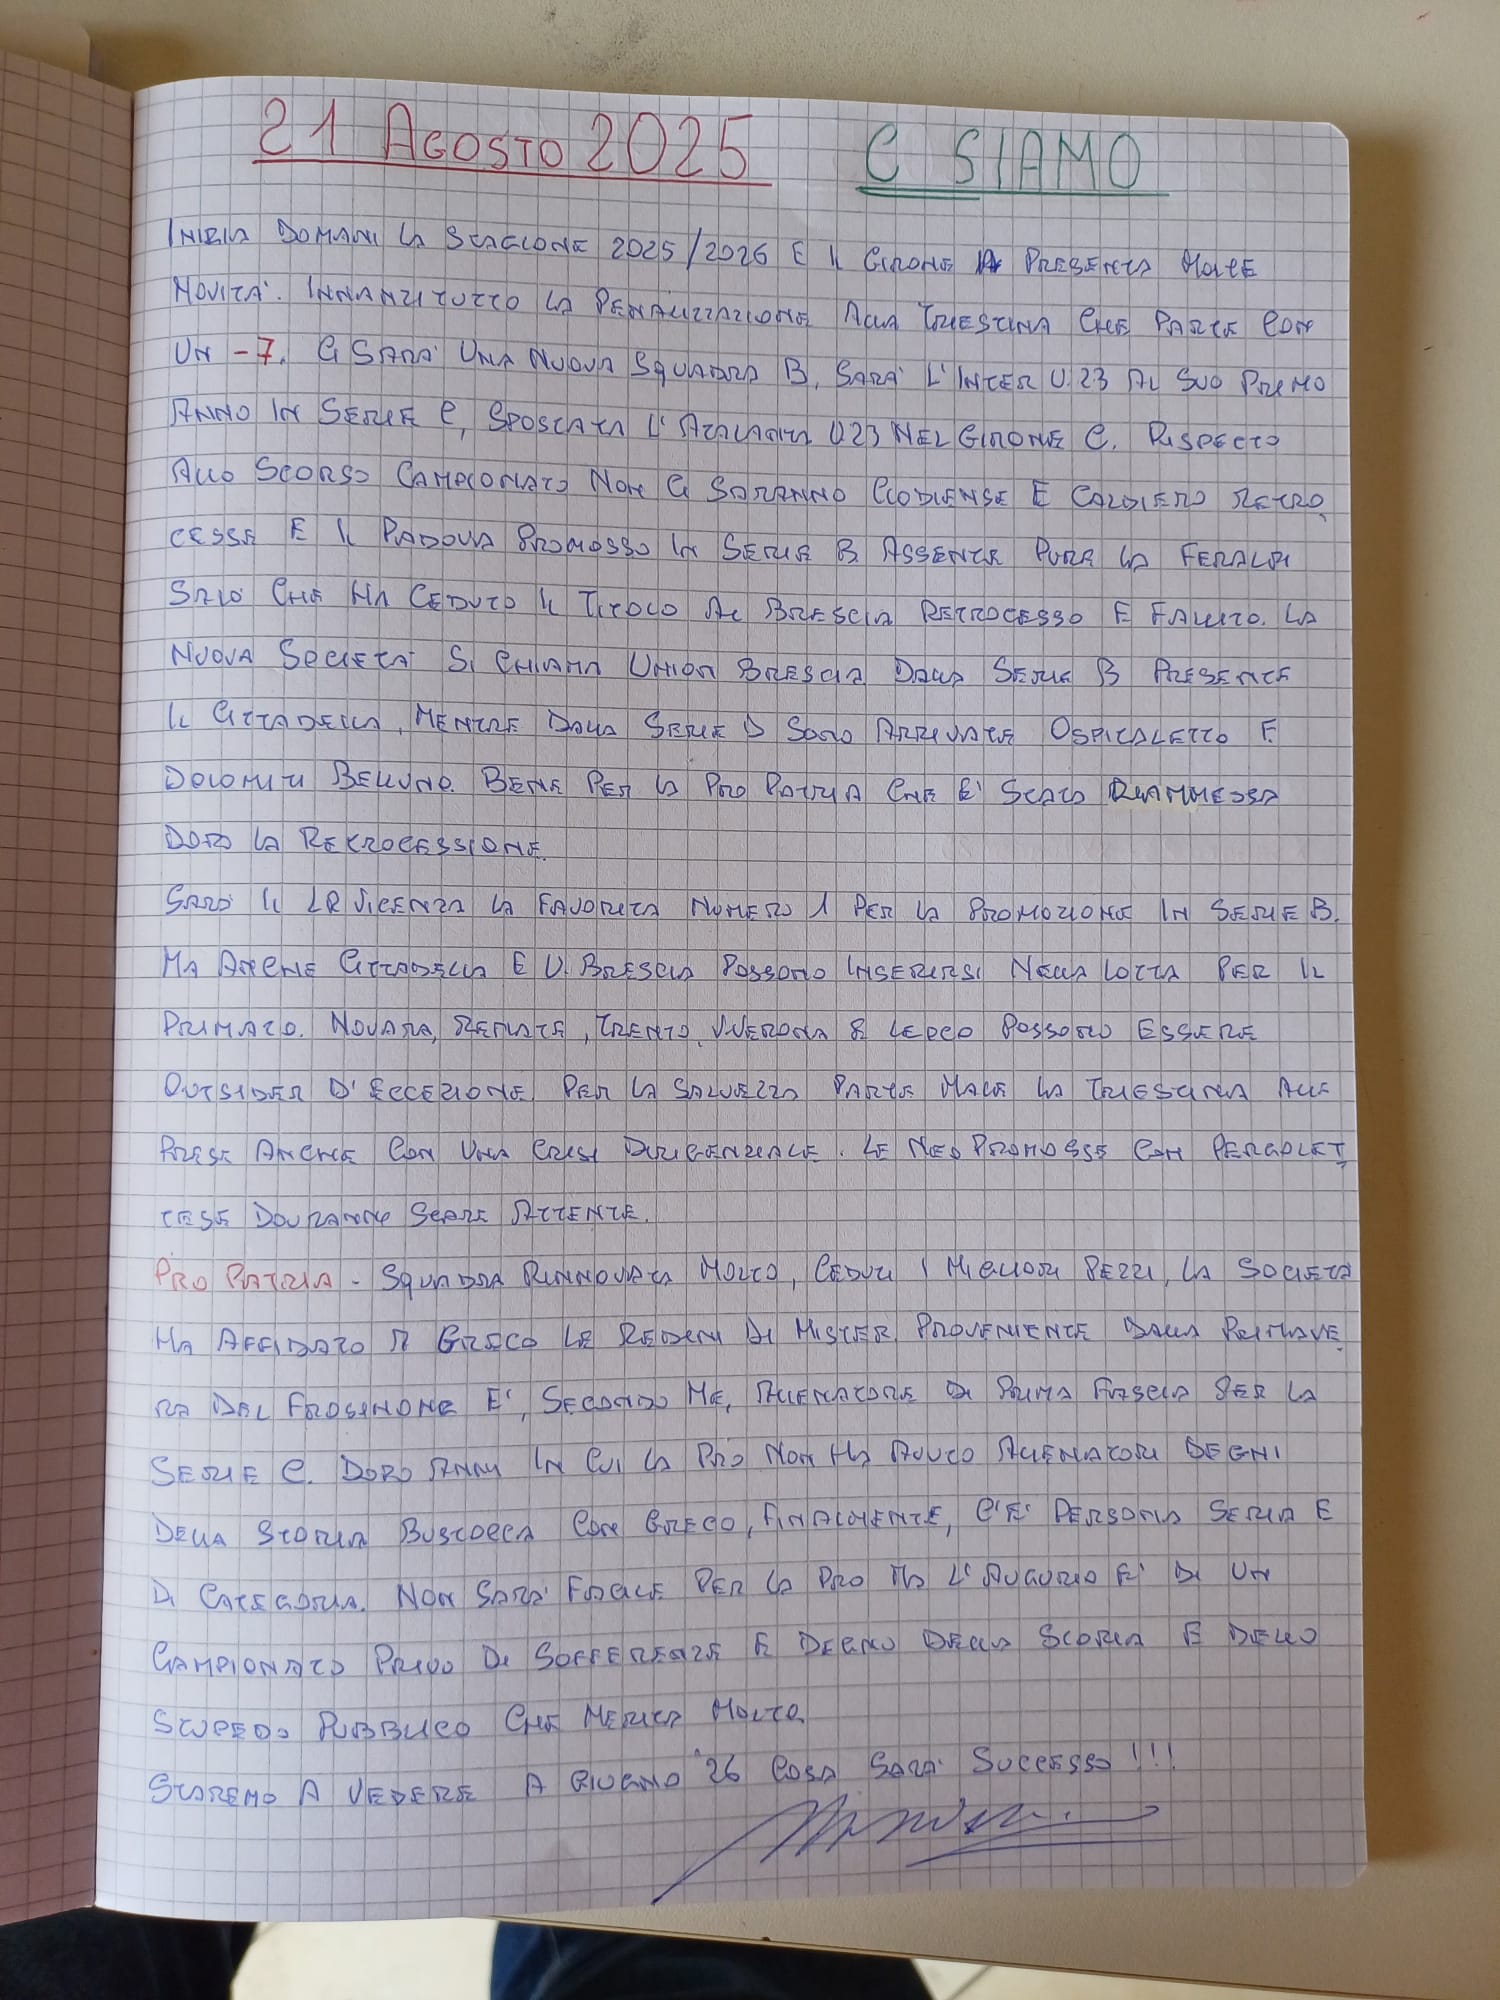 21 AGOSTO 2025 C SIAMO
INIZIA DOMANI LA STAGIONE 2025/2026 E IL GIRONE A PRESENTA MOLTE
NOVITA'. INNANZITUTTO LA PENALIZZAZIONE ALLA TRIESTINA CHE PARTE CON
UN -7. CI SARA' UNA NUOVA SQUADRA B, SARA' L'INTER U.23 AL SUO PRIMO
ANNO IN SERIE C, SPOSTATA L'ATALANTA U23 NEL GIRONE C. RISPETTO
ALLO SCORSO CAMPIONATO NON CI SARANNO CLODIENSE E CALDIERO RETRO
CESSE E IL PADOVA PROMOSSO IN SERIE B. ASSENTE PURE LA FERALPI
SALO' CHE HA CEDUTO IL TITOLO AL BRESCIA RETROCESSO E FALLITO. LA
NUOVA SOCIETA' SI CHIAMA UNION BRESCIA. DALLA SERIE B PRESENTE
IL CITTADELLA, MENTRE DALLA SERIE D SONO ARRIVATE OSPITALETTO E
DOLOMITI BELLUNO. BENE PER LA PRO PATRIA CHE E' STATA RIAMMESSA
DOPO LA RETROCESSIONE.
SARA' IL LR VICENZA LA FAVORITA NUMERO 1 PER LA PROMOZIONE IN SERIE B.
MA ANCHE CITTADELLA E U. BRESCIA POSSONO INSERIRSI NELLA LOTTA PER IL
PRIMATO. NOVARA, RENATE, TRENTO, V.VERONA & LECCO POSSONO ESSERE
OUTSIDER D'ECCEZIONE. PER LA SALVEZZA PARTE MALE LA TRIESTINA ALLE
PRESE ANCHE CON UNA CRISI DIRIGENZIALE. LE NEO PROMOSSE CON PERGOLET
TESE DOVRANNO STARE ATTENTE.
PRO PATRIA - SQUADRA RINNOVATA MOLTO, CEDUTI I MIGLIORI PEZZI, LA SOCIETA'
HA AFFIDATO A GRECO LE REDINI DI MISTER. PROVENIENTE DALLA PRIMAVE
RA DEL FROSINONE E', SECONDO ME, ALLENATORE DI PRIMA FASCIA PER LA
SERIE C. DOPO ANNI IN CUI LA PRO NON HA AVUTO ALLENATORI DEGNI
DELLA STORIA BUSTOCCA CON GRECO, FINALMENTE, C'E' PERSONA SERIA E
DI CATEGORIA. NON SARA' FACILE PER LA PRO MA L'AUGURIO E' DI UN
CAMPIONATO PRIVO DI SOFFERENZE E DEGNO DELLA STORIA E DELLO
STUPEDO PUBBLICO CHE MERITA MOLTO.
STAREMO A VEDERE A GIUGNO '26 COSA SARA' SUCCESSO!!!